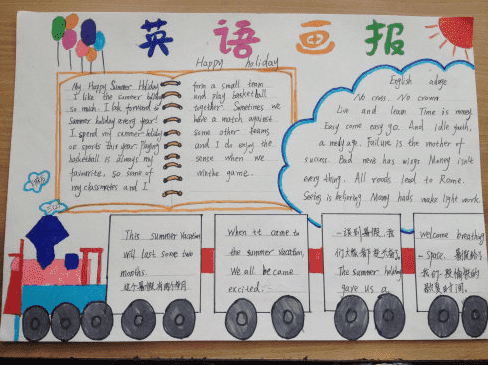 英语画报
Happy holiday
My Happy Summer Holiday
I like the summer holiday
so much. I look forward to
summer holiday every year!
I spend my summer holiday
on sports this year. Playing
basketball is always my
favourite. So some of
my classmates and I
form a small team
and play basketball
together. Sometimes we
have a match against
some other teams
and I do enjoy the
sense when we
win the game.
English adage
No cross. No crown
Live and learn Time is money
Easy come easy go. And idle youth,
a needy age. Failure is the mother of
success. Bad news has wings Money isn't
everything. All roads lead to Rome.
Seeing is believing. Many hads make light work.
This summer vacation
will last some two
months.
这个暑假有两个月
When it came to
the summer vacation,
We all be came
excited.
一谈到暑假,我
们大家都
The summer holiday
gave us a
welcome breathing
-space. 暑假给了
我们一段愉快的
时间。